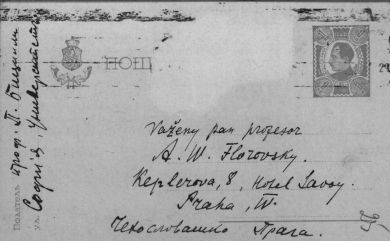 ПОЩ
Податель проф. П. Бицилли
ул. София Университетъ
Vážený pan profesor
A. W. Florovsky.
Keplerova, 8, Hotel Savoy.
Praha, IV.
Чехословашко Прага.